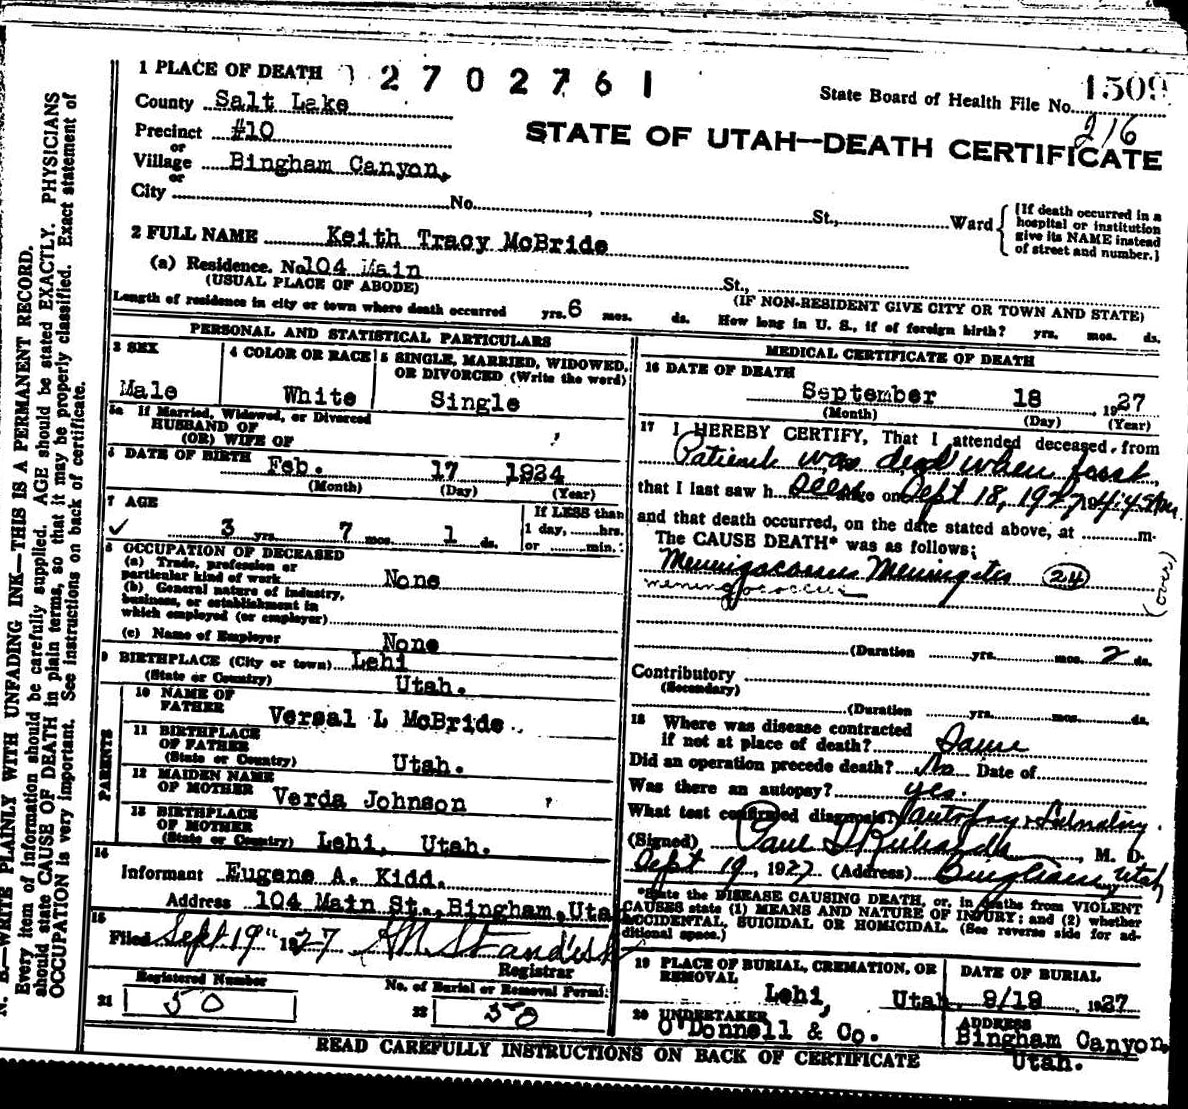 1 PLACE OF DEATH 2702761
1509
County Salt Lake
State Board of Health File No.
216
Precinct #10
or
STATE OF UTAH—DEATH CERTIFICATE
Village Bingham Canyon,
or
City No. , St., Ward
[If death occurred in a
hospital or institution
give its NAME instead
of street and number.]
2 FULL NAME Keith Tracy McBride
(a) Residence. No. 104 Main St.,
(USUAL PLACE OF ABODE)
(IF NON-RESIDENT GIVE CITY OR TOWN AND STATE)
Length of residence in city or town where death occurred yrs. 6 mos. ds. How long in U. S., if of foreign birth? yrs. mos. ds.
PERSONAL AND STATISTICAL PARTICULARS
3 SEX
Male
4 COLOR OR RACE
White
5 SINGLE, MARRIED, WIDOWED,
OR DIVORCED (Write the word)
Single
5a If Married, Widowed, or Divorced
HUSBAND OF
(OR) WIFE OF
6 DATE OF BIRTH Feb. 17 1924
(Month) (Day) (Year)
7 AGE
3 yrs. 7 mos. 1 ds.
If LESS than
1 day, hrs.
or min.
8 OCCUPATION OF DECEASED
(a) Trade, profession or
particular kind of work None
(b) General nature of industry,
business, or establishment in
which employed (or employer)
(c) Name of Employer None
9 BIRTHPLACE (City or town) Lehi
(State or Country) Utah.
PARENTS
10 NAME OF
FATHER Versal L McBride
11 BIRTHPLACE
OF FATHER
(State or Country) Utah.
12 MAIDEN NAME
OF MOTHER Verda Johnson
13 BIRTHPLACE
OF MOTHER
(State or Country) Lehi, Utah.
14
Informant Eugene A. Kidd.
Address 104 Main St., Bingham, Uta
15
Filed Sept 19" 1927 Standish
Registrar
Registered Number
21 50
No. of Burial or Removal Permit
22 50
MEDICAL CERTIFICATE OF DEATH
16 DATE OF DEATH
September 18, 1927
(Month) (Day) (Year)
17 I HEREBY CERTIFY, That I attended deceased from
Patient was dead when first
that I last saw h seen on Sept 18, 1927
and that death occurred, on the date stated above, at m.
The CAUSE DEATH* was as follows:
Meningococcus Meningitis 24
meningococcus
(over)
(Duration yrs. mos. 2 ds.
Contributory
(Secondary)
(Duration yrs. mos. ds.
18 Where was disease contracted
if not at place of death? Same
Did an operation precede death? No Date of
Was there an autopsy? yes.
What test confirmed diagnosis? autopsy
(Signed) Paul S Richards, M. D.
Sept 19, 1927 (Address) Bingham, Utah
*State the DISEASE CAUSING DEATH, or, in deaths from VIOLENT
CAUSES state (1) MEANS AND NATURE OF INJURY; and (2) whether
ACCIDENTAL, SUICIDAL OR HOMICIDAL. (See reverse side for ad-
ditional space.)
19 PLACE OF BURIAL, CREMATION, OR
REMOVAL
Lehi, Utah.
DATE OF BURIAL
9/19 1927
20 UNDERTAKER
O'Donnell & Co.
ADDRESS
Bingham Canyon,
Utah.
READ CAREFULLY INSTRUCTIONS ON BACK OF CERTIFICATE
N. B.—WRITE PLAINLY WITH UNFADING INK—THIS IS A PERMANENT RECORD.
Every item of information should be carefully supplied. AGE should be stated EXACTLY. PHYSICIANS
should state CAUSE OF DEATH in plain terms, so that it may be properly classified. Exact statement of
OCCUPATION is very important. See instructions on back of certificate.